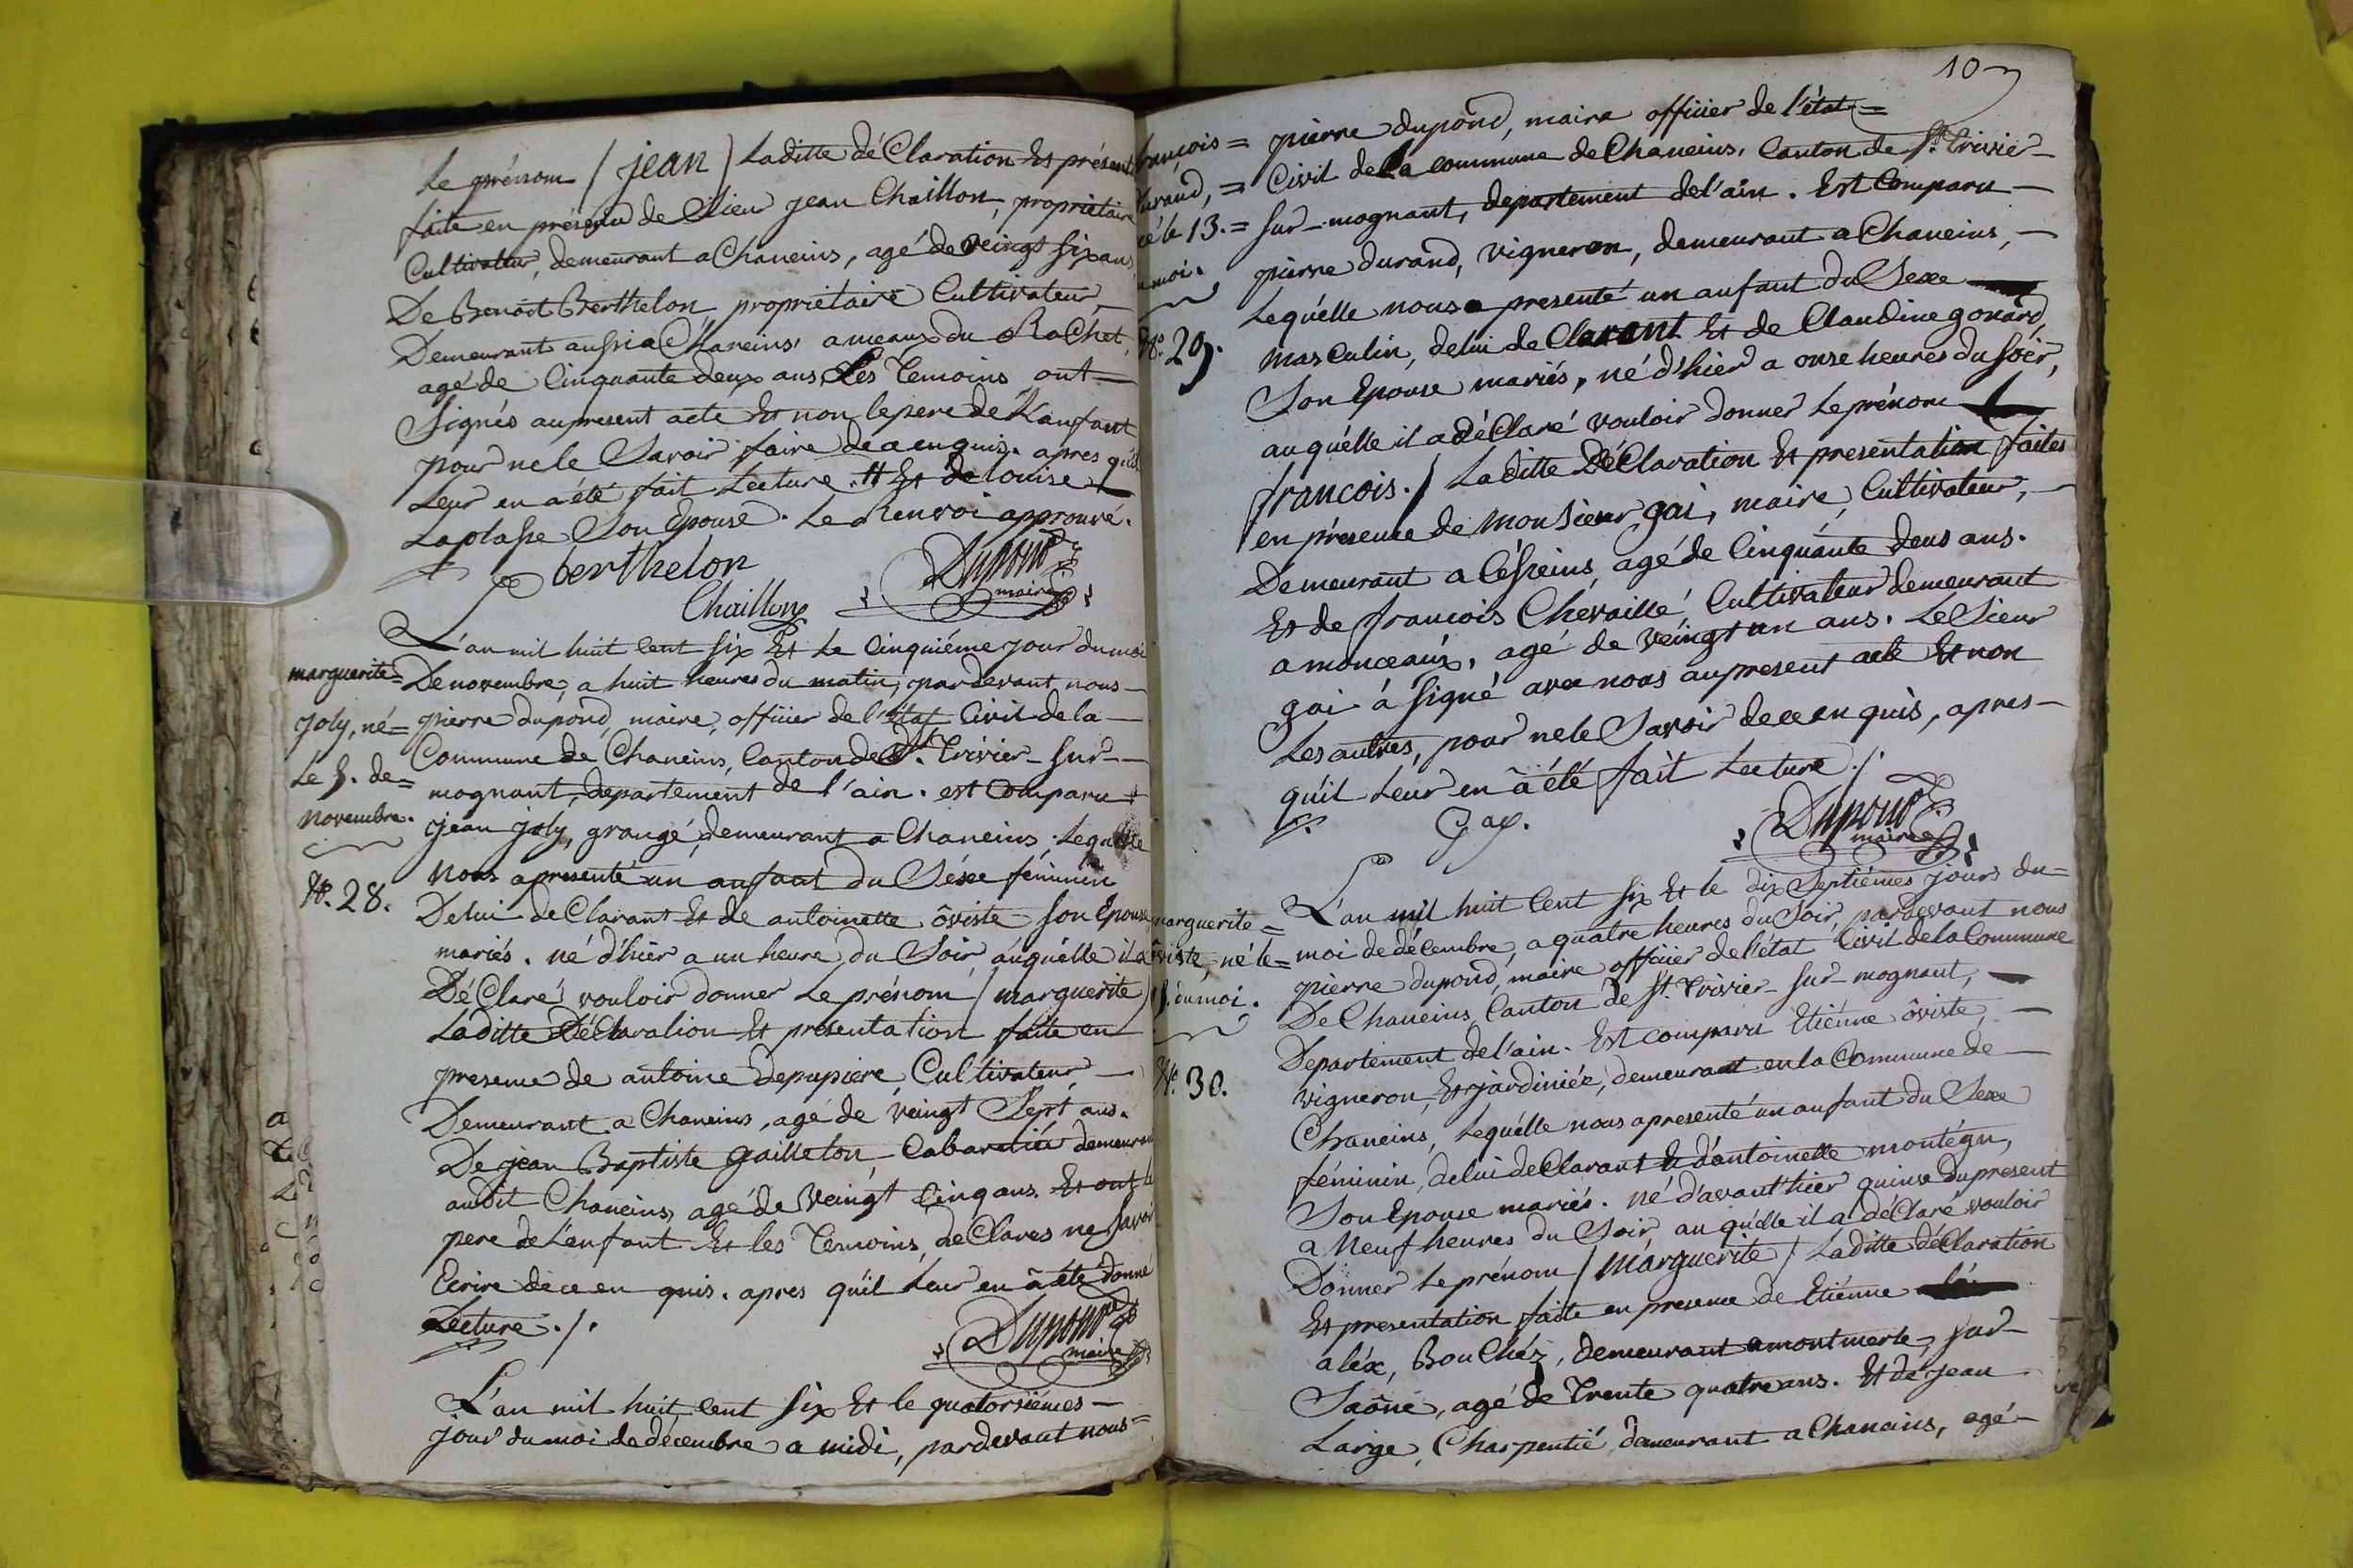 Le prénom / jean / Laditte déClaration Et présent
faite en présence de Sieur jean Chaillon, propriétaire
Cultivateur, demeurant a Chaneins, agé de veingt six ans,
De Benoit Berthelon, propriétaire Cultivateur,
Demeurant aussi a Chaneins, ameaux du Rachet,
agé de Cinquante deux ans, Les Temoins ont
Signés au present acte Et non le pere de L'anfant
pour ne le Savoir faire de ce enquis. apres qu'il
Leur en a été fait Lecture. # Et de Louise
Laplasse Son Epouse. Le Renvoi approuvé.
Berthelon
Dupond
maire
Chaillon
L'an mil huit Cent Six Et Le Cinquiéme jour du moi
De novembre, a huit heures du matin, pardevant nous
pierre dupond, maire, officier de l'état Civil de la
Commune de Chaneins, Canton de St. Trivier-sur-
mognant, departement de l'ain. est Comparu
jean joly, grangé, demeurant a Chaneins, Lequelle
nous a presenté un anfant du Séxe féminin
De lui deClarant Et de antoinette ôviste Son Epouse
mariés. né d'hier a un heure du Soir, auquélle il a
DéClaré vouloir donner Le prénom / marguerite /
Laditte DéClaration Et presentation faite en
presence de antoine depupiere, Cultivateur
Demeurant a Chaneins, agé de veingt Sept ans.
De jean Baptiste gailleton, Cabaretiér demeurant
audit Chaneins, agé de Veingt Cinq ans. Et ont le
pere de L'enfant Et les Temoins, deClarés ne Savoir
Ecrire de ce en quis. apres qu'il Leur en a été donné
Lecture ./.
Dupond
maire
L'an mil huit Cent Six Et le quatorsiémes
jour du moi de décembre a midi, pardevant nous=
marguerite=
joly, né=
Le 5. de=
novembre.
No. 28.
10
pierre dupond, maire officier de l'état=
Civil de La commune de Chaneins, Canton de St. Trivier-
sur-mognant, departement de l'ain. Est Comparu
pierre durand, vigneron, demeurant a Chaneins,
Lequélle nous a presenté un anfant du Sexe
masculin, de lui deClarant Et de Claudine gonard,
Son Epouse mariés, né d'hier a onse heures du soir,
auquélle il a déClaré vouloir donner Le prénom /
francois. / Laditte DéClaration Et presentation faites
en présence de monsieur gai, maire, Cultivateur,
Demeurant a Césseins, agé de Cinquante deus ans.
Et de francois Chevaillé, Cultivateur demeurant
a monceaux, agé de veingt un ans. Le Sieur
gai a Signé avec nous au present acte Et non
Les autres, pour ne le Savoir de ce en quis, apres
qu'il Leur en a été fait Lecture ./.
Gay.
Dupond
maire
L'an mil huit Cent Six Et le dix Septiémes jours du=
moi de décembre, a quatre heures du Soir, pardevant nous
pierre dupond, maire officier de l'état Civil de la Commune
De Chaneins Canton de St. Trivier-sur-mognant,
Departement de l'ain. Est comparu Etiénne ôviste,
vigneron, Et jardiniér, demeurant en la Commune de
Chaneins, Lequélle nous a presenté un anfant du Sexe
féminin, de lui deClarant Et d'antoinette montégu,
Son Epouse mariés. né d'avant'hier quinse du present
a Neuf heures du Soir, au quélle il a déClaré vouloir
Donner Le prénom / Marguerite / Laditte déClaration
Et presentation faite en presence de Etiénne
aléx, Bouchéz, demeurant a montmerle, sur-
Saône, agé de Trente quatre ans. Et de jean
Large, Charpentié demeurant a Chaneins, agé
françois=
durand,=
né le 13.=
du moi.
No. 29.
marguerite=
ôviste, né le=
du moi.
No. 30.